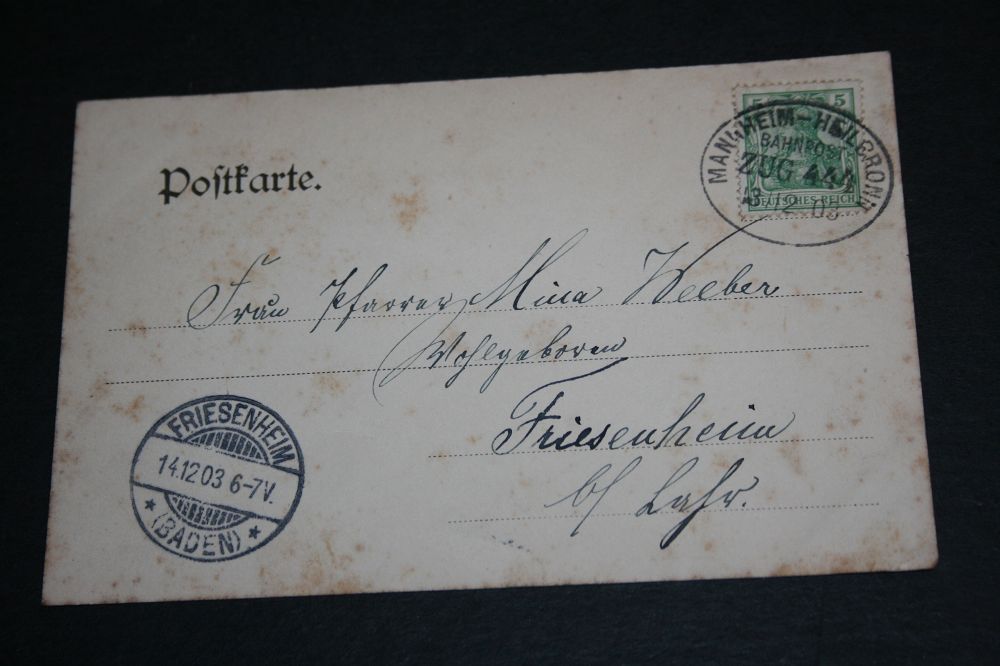 Postkarte.
5 5
DEUTSCHES REICH
MANNHEIM-HEILBRONN
BAHNPOST
ZUG 444
13 12 03
Frau Pfarrer Mina Weeber
Wohlgeboren
Friesenheim
b/ Lahr.
FRIESENHEIM
14.12.03 6-7V.
* (BADEN) *